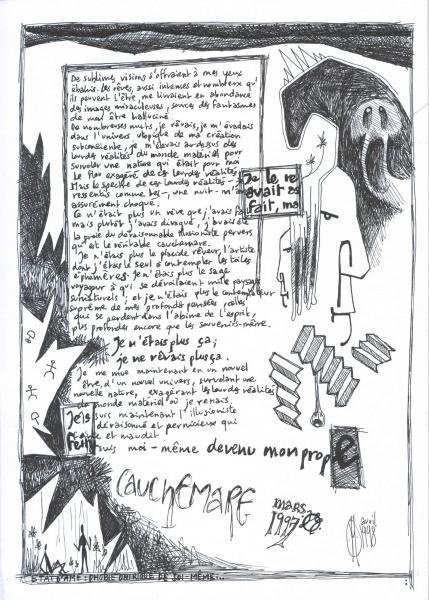 De sublimes visions s'offraient à mes yeux
ébahis. Les rêves, aussi intenses et nombreux qu'
ils peuvent l'être, me livraient en abondance
des images miraculeuses, sources des fantasmes
de mon être halluciné.
De nombreuses nuits, je rêvais, je m'évadais
dans l'univers utopique de ma création
subconsciente, je m'élevais au-dessus des
lourdes réalités du monde matériel pour
survoler une nature qui était pour moi
le flou exagéré de ces lourdes réalités.
Mais le spectre de ces lourdes réalités
ressenties comme tel, une nuit m'a
assurément choqué.
Ce n'était plus un rêve que j'avais fait
mais plutôt j'avais divagué, j'avais été
la proie du déraisonnable illusionniste pervers
qu'est le véritable cauchemar.
Je n'étais plus le placide rêveur, l'artiste
dont j'étais le seul à contempler les toiles
éphémères. Je n'étais plus le sage
voyageur à qui se dévoilaient mille paysages
surnaturels ; et je n'étais plus le contemplateur
suprême de mes profondes pensées, celles
qui se perdent dans l'abîme de l'esprit,
plus profondes encore que les souvenirs-même.
Je n'étais plus ça ;
je ne rêvais plus ça.
Je me mue maintenant en un nouvel
être, d'un nouvel univers, survolant une
nouvelle nature, exagérant les lourdes réalités
du monde matériel où je renais.
Je suis maintenant l'illusionniste
déraisonné et pernicieux qui
et maudit
suis moi-même devenu mon propre
CAUCHEMARE
mars
1997
avril
1998
Je le re
vait as
fait, ma
ETAT D'AME : PHOBIE ONIRIQUE DE SOI-MÊME...